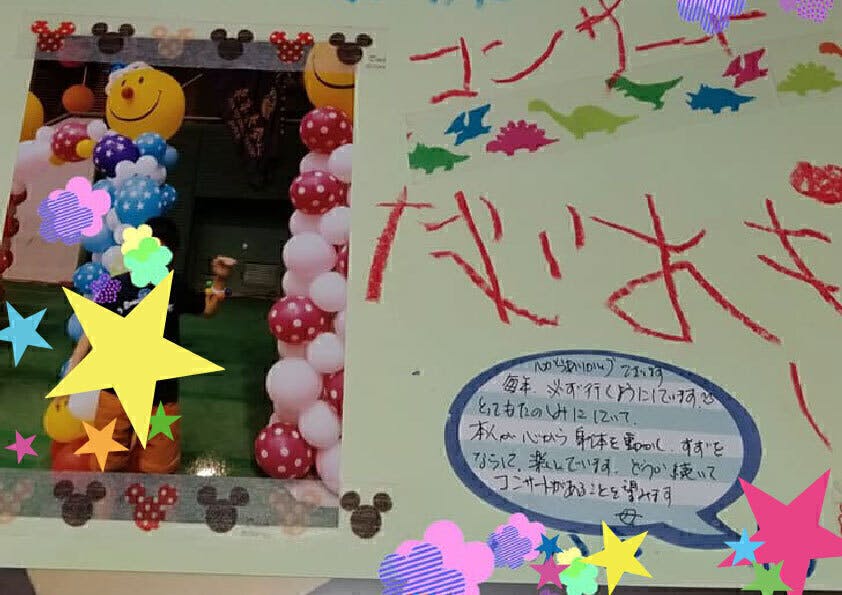 コンサート
だいすき
心からありがとうございます
毎年、必ず行くようにしています。
とてもたのしみにしていて、
本人が心から身体を動かし、すずを
ならして、楽しんでいます。どうか続いて
コンサートがあることを望みます
母